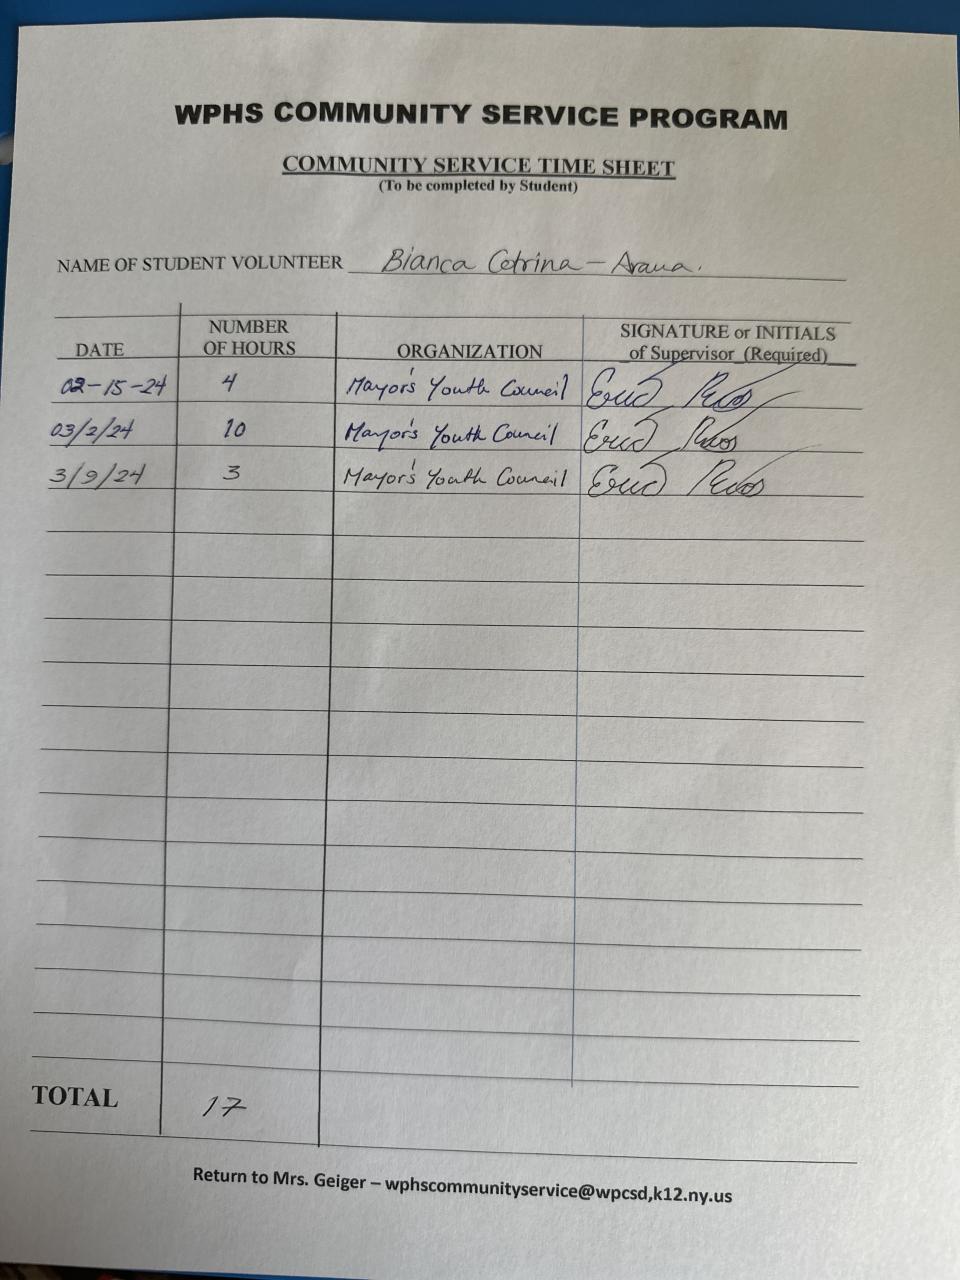 WPHS COMMUNITY SERVICE PROGRAM
COMMUNITY SERVICE TIME SHEET
(To be completed by Student)
NAME OF STUDENT VOLUNTEER Bianca Cetrina - Arana.
DATE NUMBER OF HOURS ORGANIZATION SIGNATURE or INITIALS of Supervisor (Required)
02-15-24 4 Mayor's Youth Council
03/2/24 10 Mayor's Youth Council
3/9/24 3 Mayor's Youth Council
TOTAL 17
Return to Mrs. Geiger – wphscommunityservice@wpcsd,k12.ny.us